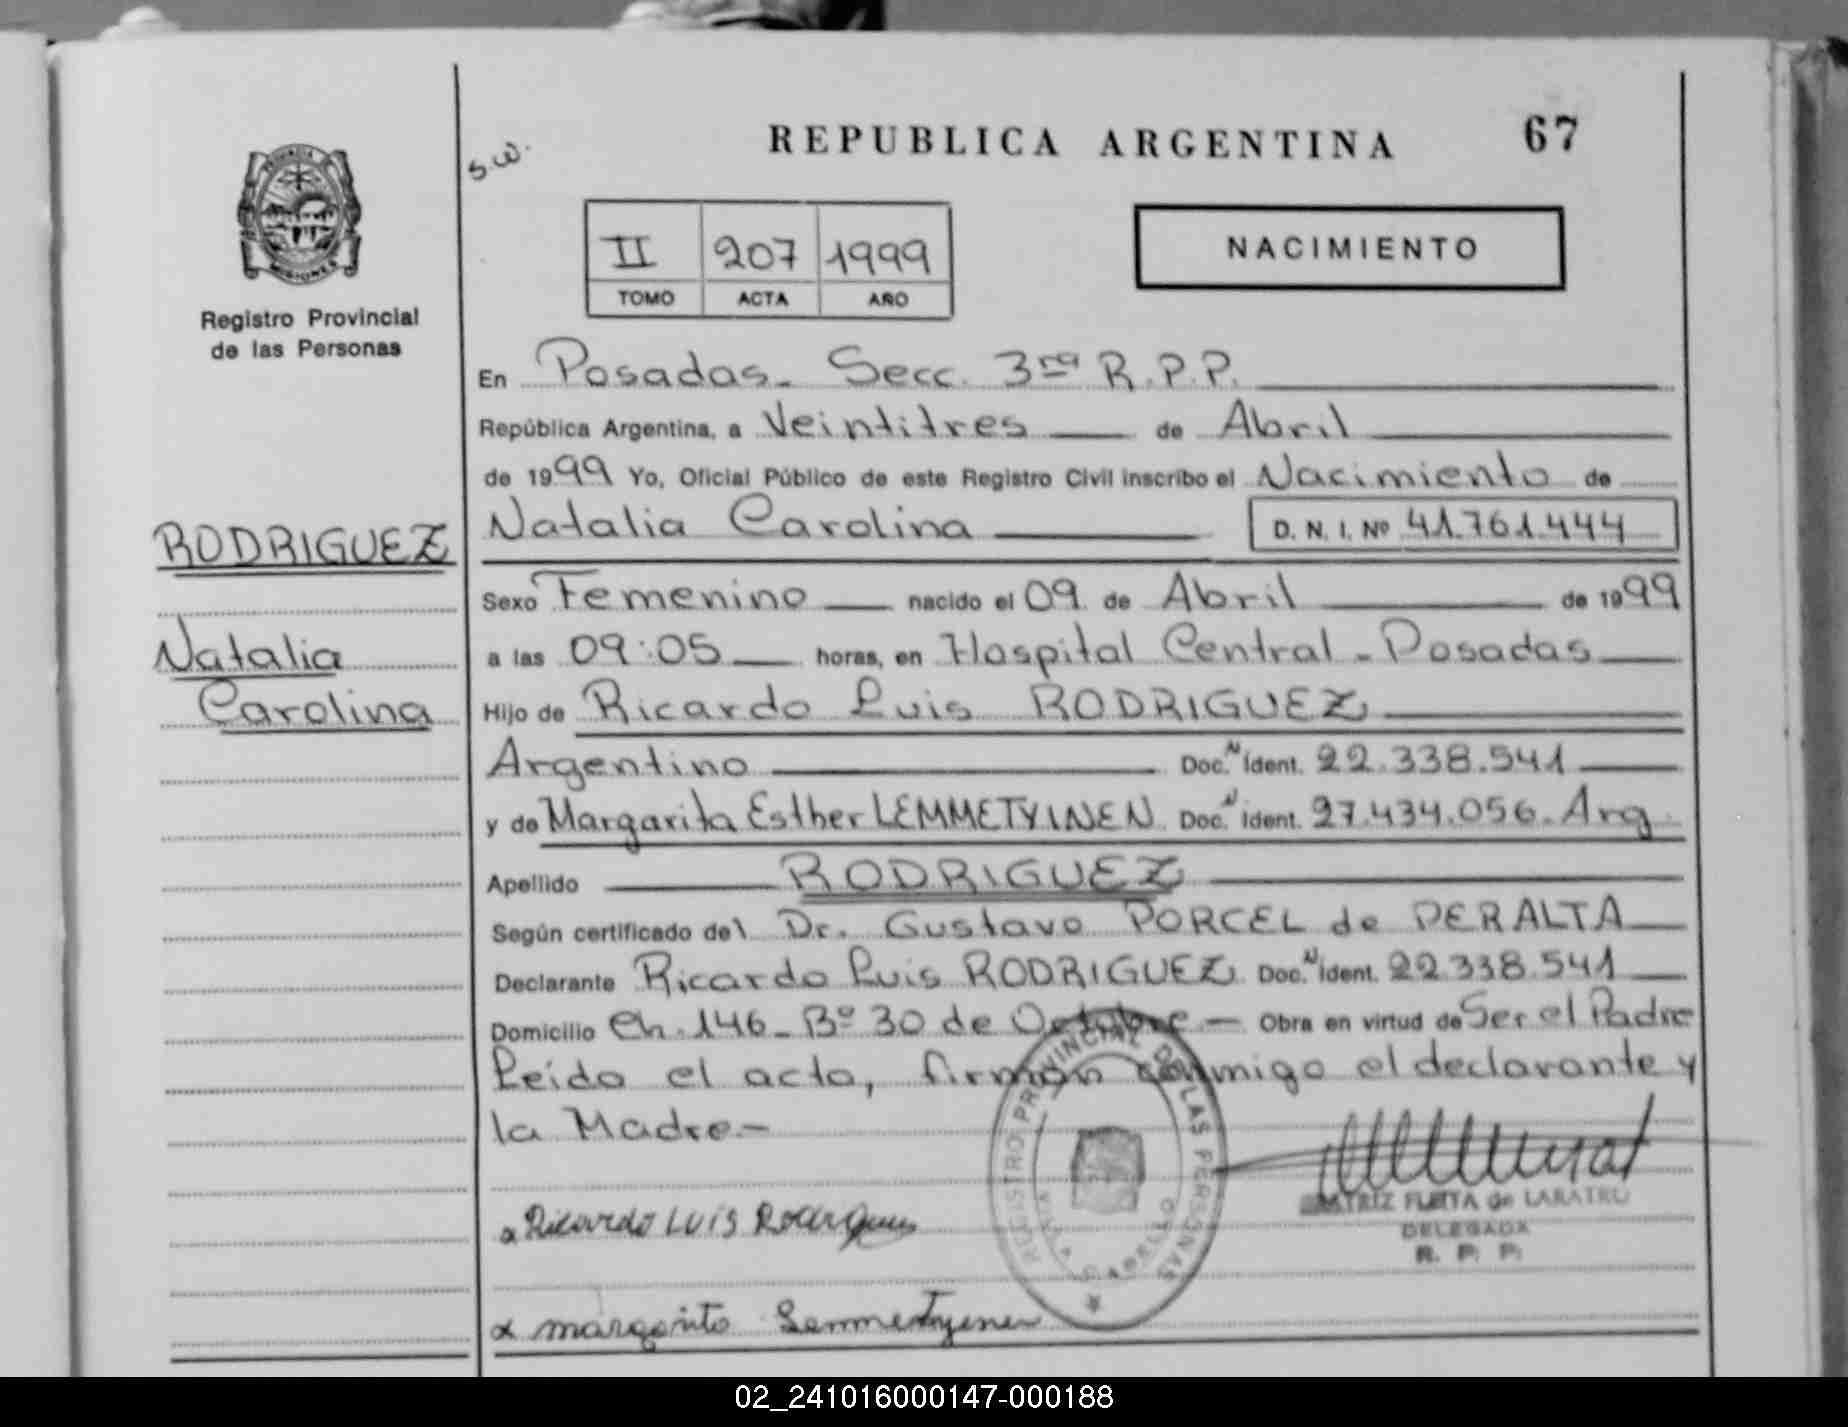 REPUBLICA ARGENTINA 67
s.w.
PROVINCIA
MISIONES
Registro Provincial
de las Personas
II 207 1999
TOMO ACTA AÑO
NACIMIENTO
En Posadas - Secc. 3ra R.P.P.
República Argentina, a Veintitres de Abril
de 1999 Yo, Oficial Público de este Registro Civil inscribo el Nacimiento de
RODRIGUEZ
Natalia Carolina D. N. I. Nº 41.761.444
Sexo Femenino nacido el 09 de Abril de 1999
Natalia
a las 09:05 horas, en Hospital Central - Posadas
Carolina
Hijo de Ricardo Luis RODRIGUEZ
Argentino Doc. N Ident. 22.338.541
y de Margarita Esther LEMMETYINEN Doc. N Ident. 27.434.056 - Arg.
Apellido RODRIGUEZ
Según certificado del Dr. Gustavo PORCEL de PERALTA
Declarante Ricardo Luis RODRIGUEZ Doc. N Ident. 22.338.541
Domicilio Ch. 146 - Bº 30 de Octubre - Obra en virtud de Ser el Padre
Leído el acta, firman conmigo el declarante y
la Madre -
REGISTRO PROVINCIAL DE LAS PERSONAS
Ricardo LUIS Rodriguez
FLEITA de LABATRO
DELEGADA
R. P. P.
margarita Lemmetyenen
02_241016000147-000188